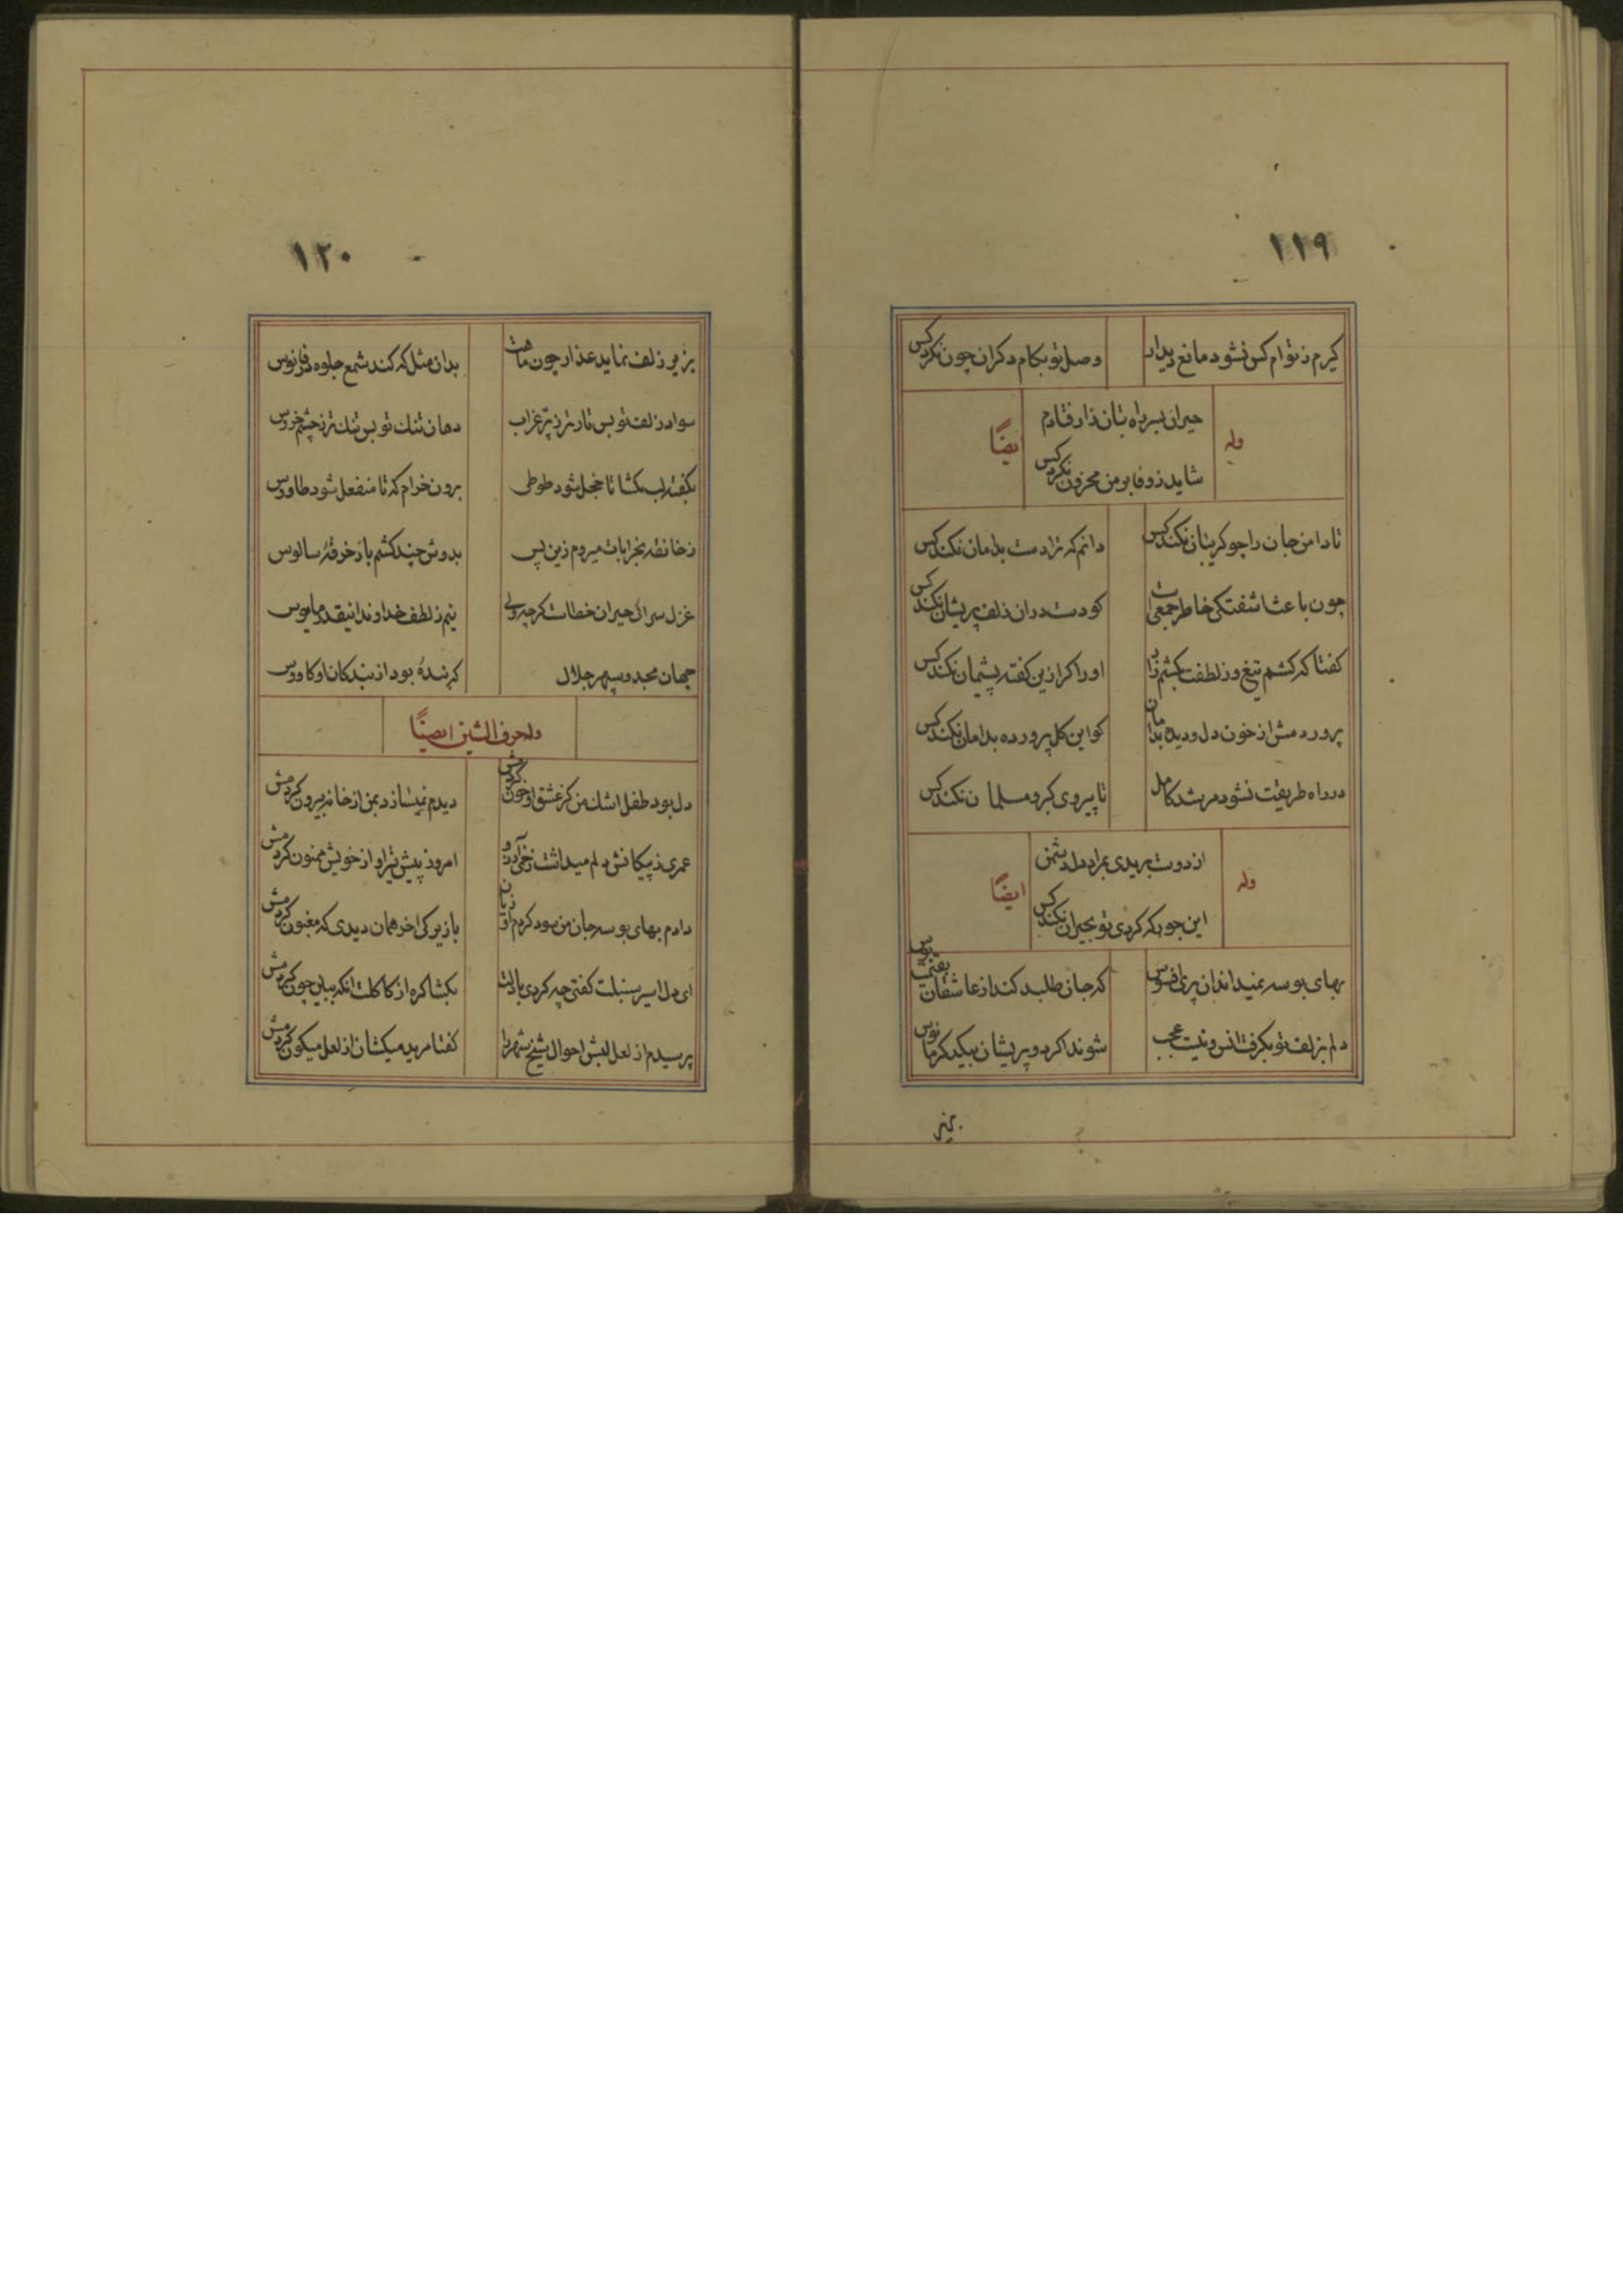 ١١٩
کیرم ز توام کس نشود مانع دیدار
وصل تو بکام دکران چون نکرد کس
وله
حیران بسر راه بتان زار فتادم
ایضًا
شاید ز وفا بر من محزون نکرد کس
تا دامن جان را چو کریبان نکند کس
دانم که ترا دست بدامان نکند کس
چون باعث اشفتکی خاطر جمعی است
کو دست در ان زلف پریشان نکند کس
کفتا که کشم تیغ و ز لطفت بکشم زار
او را کر ازین کفته پشیمان نکند کس
پرورد مش از خون دل و دیده بدامان
کو این کل پرورده بدامان نکند کس
در راه طریقت نشود مرشد کامل
تا پیروی کبر و مسلمان نکند کس
وله
از دوست بریدی بمراد دل دشمن
ایضًا
این جور که کردی تو بحیران نکند کس
بهای بوسه نمیداند ان پری افسوس
که جان طلب کند از عاشقان بقیمت بوس
دلم بزلف تو بکرفت انس و نیست عجب
شوند اکر دو پریشان بیکدکر مانوس
بزیر
١٢٠
بزیر زلف نماید عذار چون ماهت
بدان مثل که کند شمع جلوه در فانوس
سواد زلف تو بس تار تر ز پرّ غراب
دهان تنك تو بس تنك تر ز چشم خروس
بکفته لب بکشا تا خجل شود طوطی
برون خرام که تا منفعل شود طاووس
ز خانقه بخرابات میروم زین پس
بدوش چند کشم بار خرقهٔ سالوس
غزل سرائی حیران خطاست کرچه ولی
نیم ز لطف خداوند انیقدر مایوس
جهان مجد و سپهر جلال
که بندهٔ بود از بندکان او کاووس
وله حرف الشین ایضًا
دل بود طفل اشك من کز عشق او خون کردمش
دیدم نمیسازد بمن از خانه بیرون کردمش
عمری ز پیکانش دلم میداشت زخم ارزو
امروز پیش تیر او از خویش ممنون کردمش
دادم بهای بوسه جان من سود کردم او زیان
با زیرکی اخر همان دیدی که مغبون کردمش
ای دل اسیر سنبلت کفتی چه کردی با دلت
بکشا کره از کاکلت انکه ببین چون کردمش
پرسیدم از لعل لبش احوال شیخ شهر را
کفتا مرید میکشان از لعل میکون کردمش